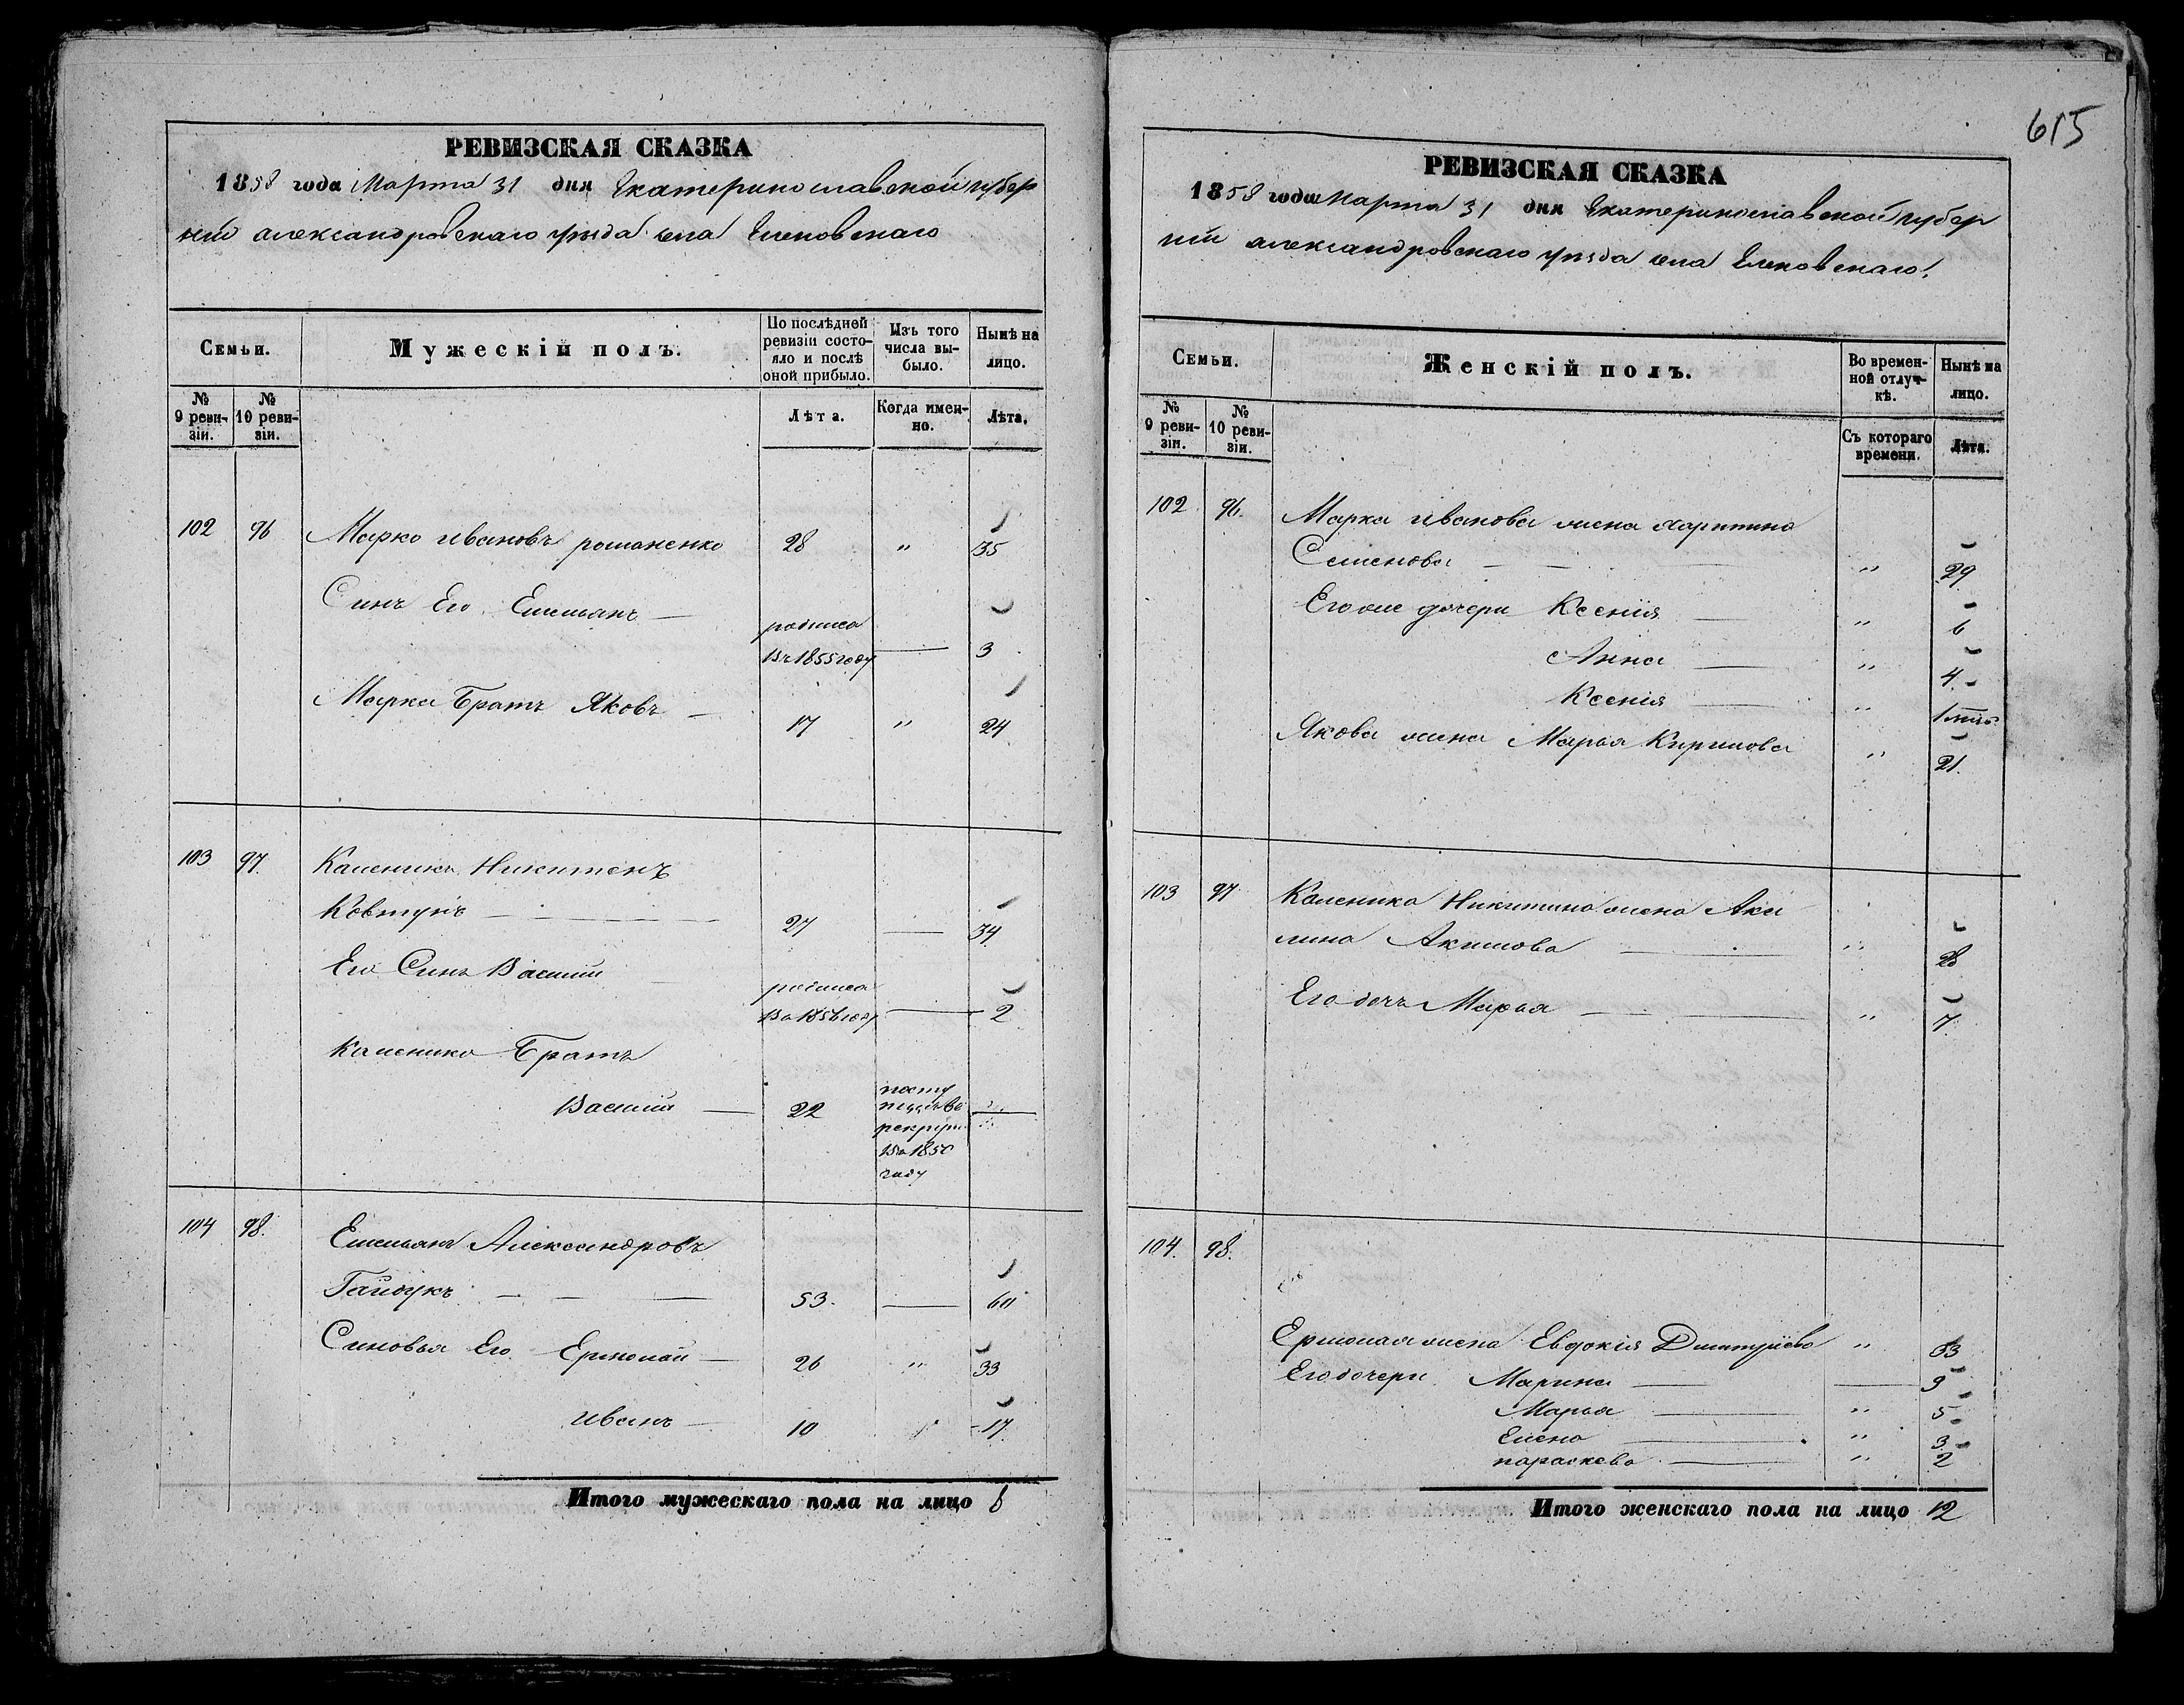 РЕВИЗСКАЯ СКАЗКА
1858 года Марта 31 дня Екатеринославской губер
нии александровскаго уѣзда села Еленовскаго
Семьи.
Мужескій полъ.
По послѣдней ревизіи состояло и послѣ оной прибыло.
Изъ того числа выбыло.
Нынѣ на лицо.
№ 9 ревизіи.
№ 10 ревизіи.
Лѣта.
Когда именно.
Лѣта.
102 96 Марко ивановъ романенко 28 " 35
Синъ Его Емельянъ — родился
Въ 1855 году — 3
Марка Братъ Яковъ — 17 " 24
103 97. Каленикъ Никитенъ
Ковтунъ — 27 — 34
Его Синъ Василий родился
Въ 1856 году — 2
Каленика Братъ
Василий — 22 посту
пилъ въ
рекруты
Въ 1850
году
104 98. Емельянъ Александровъ
Гайдукъ — — — 53. — 60
Синовья Его Ермолай — 26 " 33
иванъ — 10 " 17.
Итого мужескаго пола на лицо 8
615
РЕВИЗСКАЯ СКАЗКА
1858 года марта 31 дня Екатеринославской губер
нии александровскаго уѣзда села Еленовскаго.
Семьи.
Женскій полъ.
Во временной отлучкѣ.
Нынѣ на лицо.
№ 9 ревизіи.
№ 10 ревизіи.
Съ котораго времени.
Лѣта.
102 96. Марка иванова жена харитина
Семенова — — " 29
Его же дочери Ксенія — " 6
Анна — " 4.
Ксенія — " 1
Якова жена Марья Кирилова " 21.
103 97 Каленика Никитина жена Аки
лина Акимова — " 28
Его дочъ Марья — " 7
104. 98.
Ермолая жена Евдокія Дмитріева " 33
Его дочери Марина — — 9
Марья — " 5
Елена — " 3
параскева — " 2
Итого женскаго пола на лицо 12